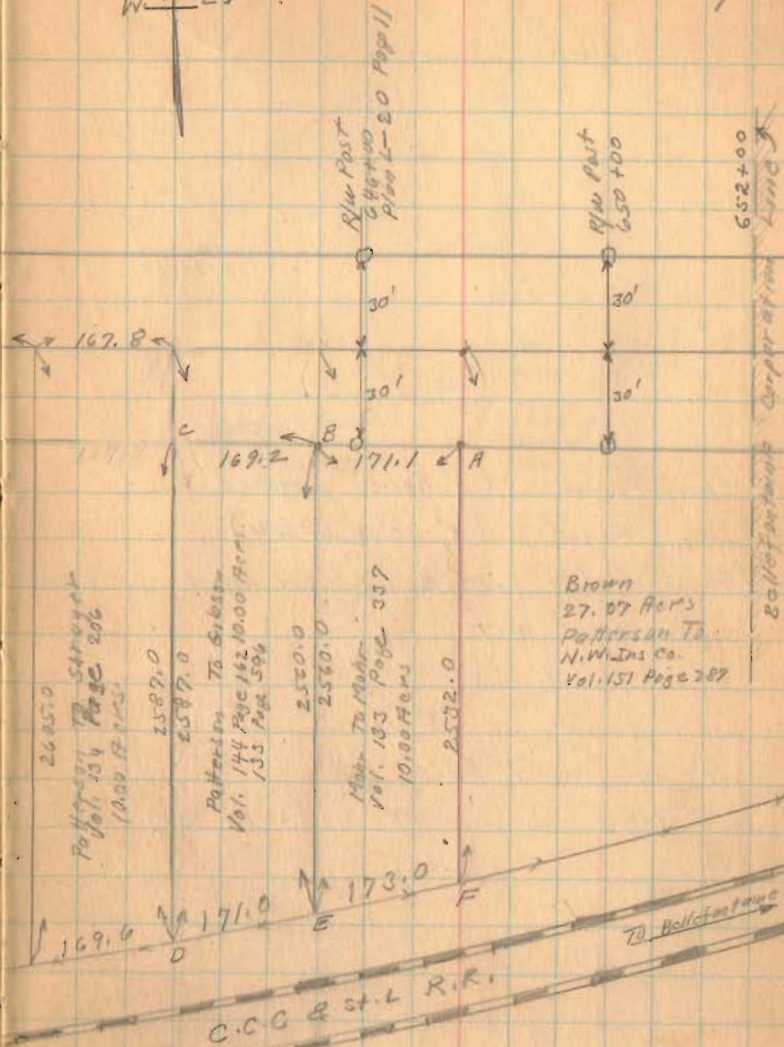 W
R/W Post
646+00
Plan L-20 Page 11
R/W Post
650+00
652+00
Bellefontaine Corporation Line
30'
30'
30'
30'
167.8
C
B
A
169.2
171.1
2605.0
Patterson To Strayer
Vol. 134 Page 206
10.00 Acres
2587.0
2587.0
Patterson To Gibson
Vol. 144 Page 162 10.00 Acrs.
133 Page 596
2560.0
2560.0
Mohr To Mohr
Vol. 133 Page 337
10.00 Acrs
2532.0
Brown
27.07 Acrs
Patterson To
N.W. Ins Co.
Vol. 151 Page 287
169.6
D
171.0
E
173.0
F
To Bellefontaine
C.C.C & St. L R.R.